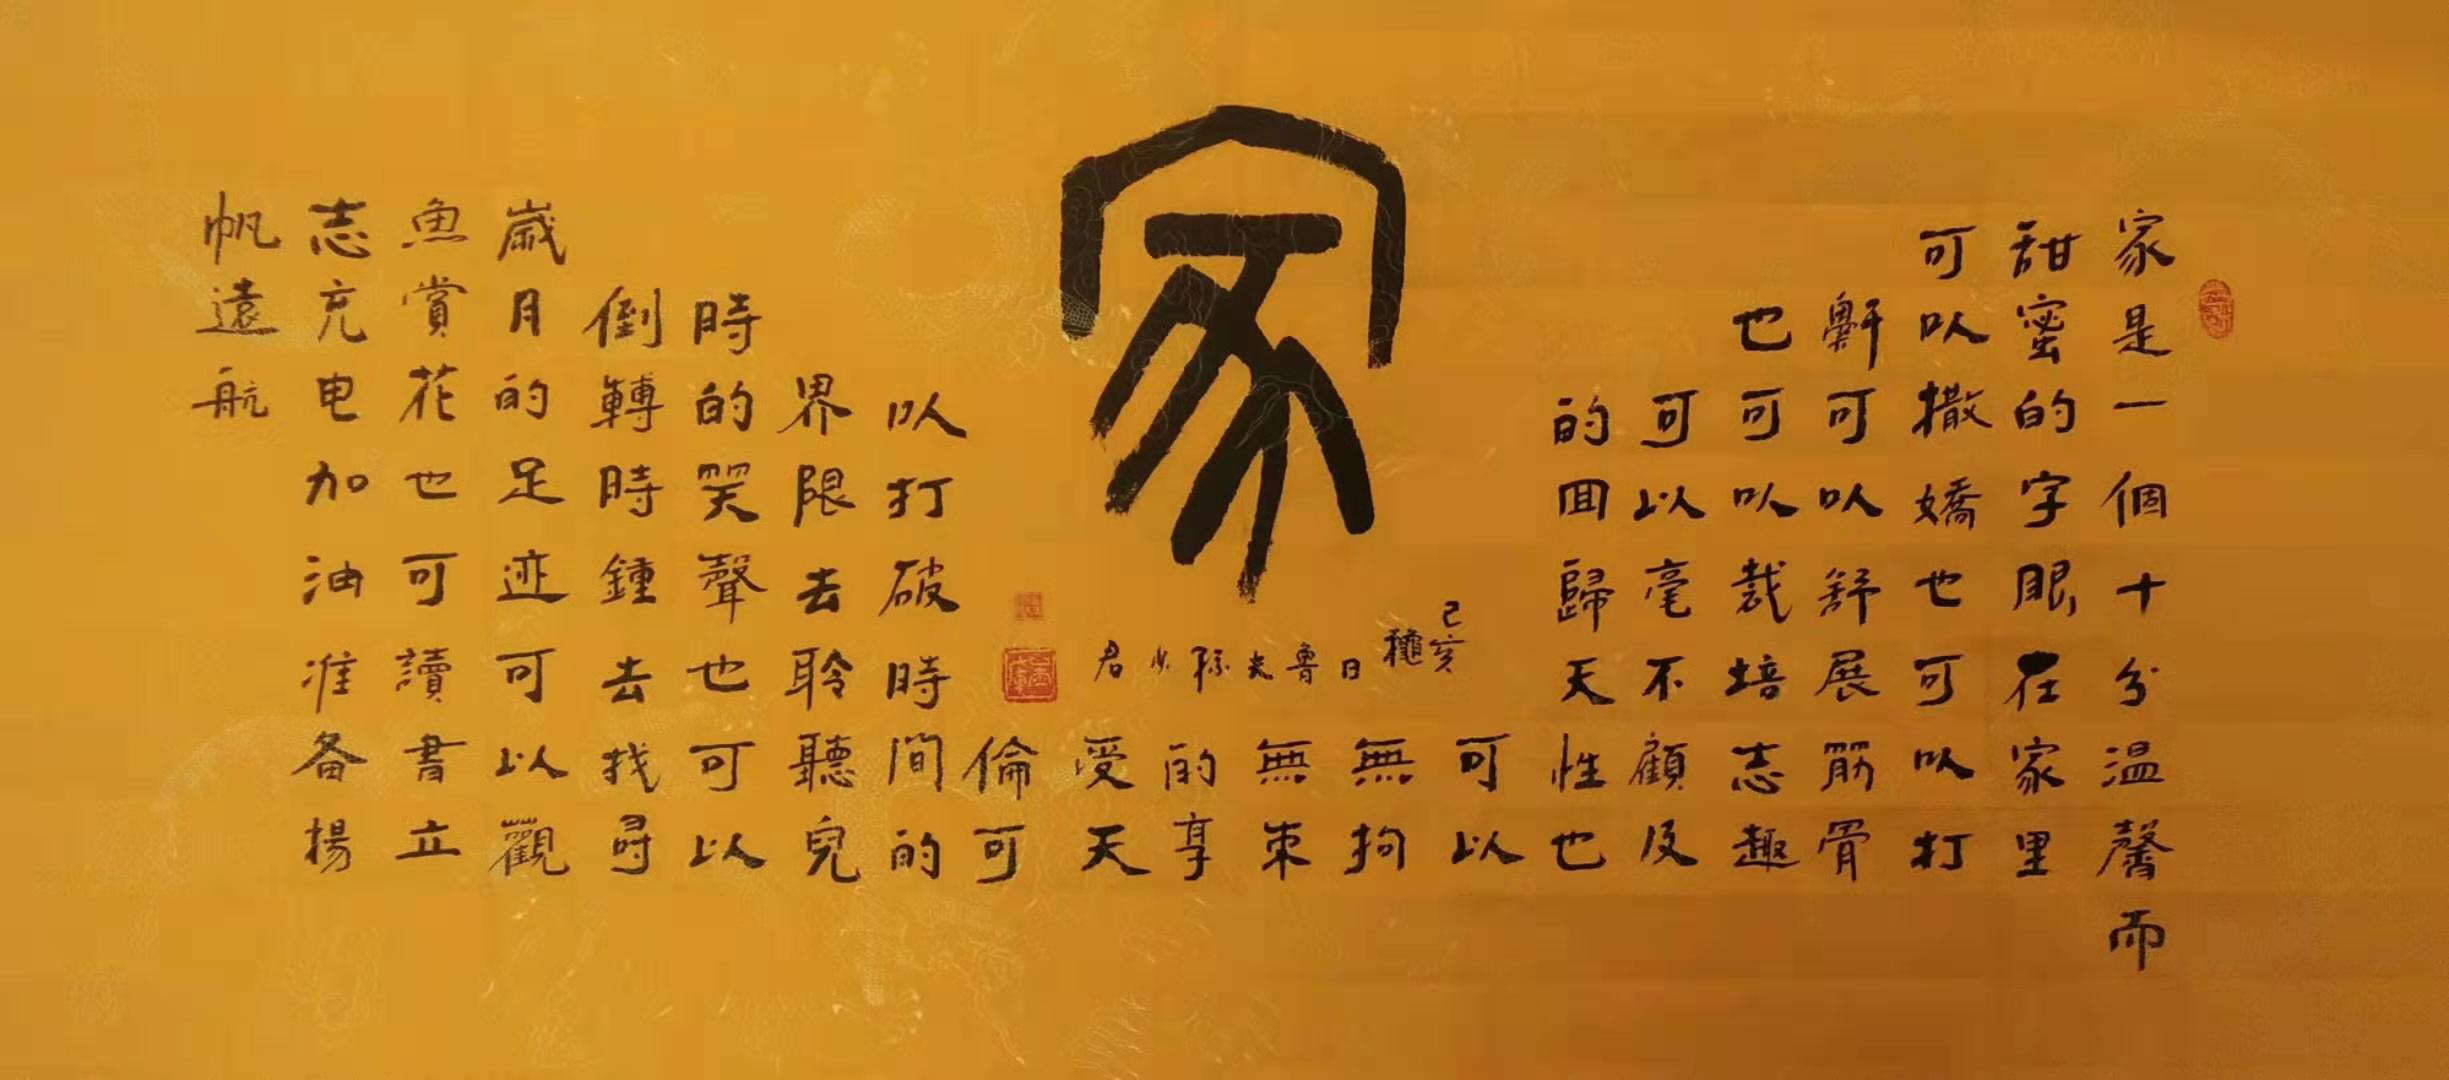 家是一個十分温馨而
甜蜜的字眼在家里
可以撒嬌也可以打
鼾可以舒展筋骨
也可以裁培志趣
可以毫不顧及
的回歸天性也
可以
無拘
無束
的享
受天
倫可
以打破時間的
界限去聆聽兒
時的笑聲也可以
倒轉時鍾去找尋
歲月的足迹可以觀
魚賞花也可讀書立
志充电加油准备揚
帆遠航
家
己亥
龝日魯夫孫少君